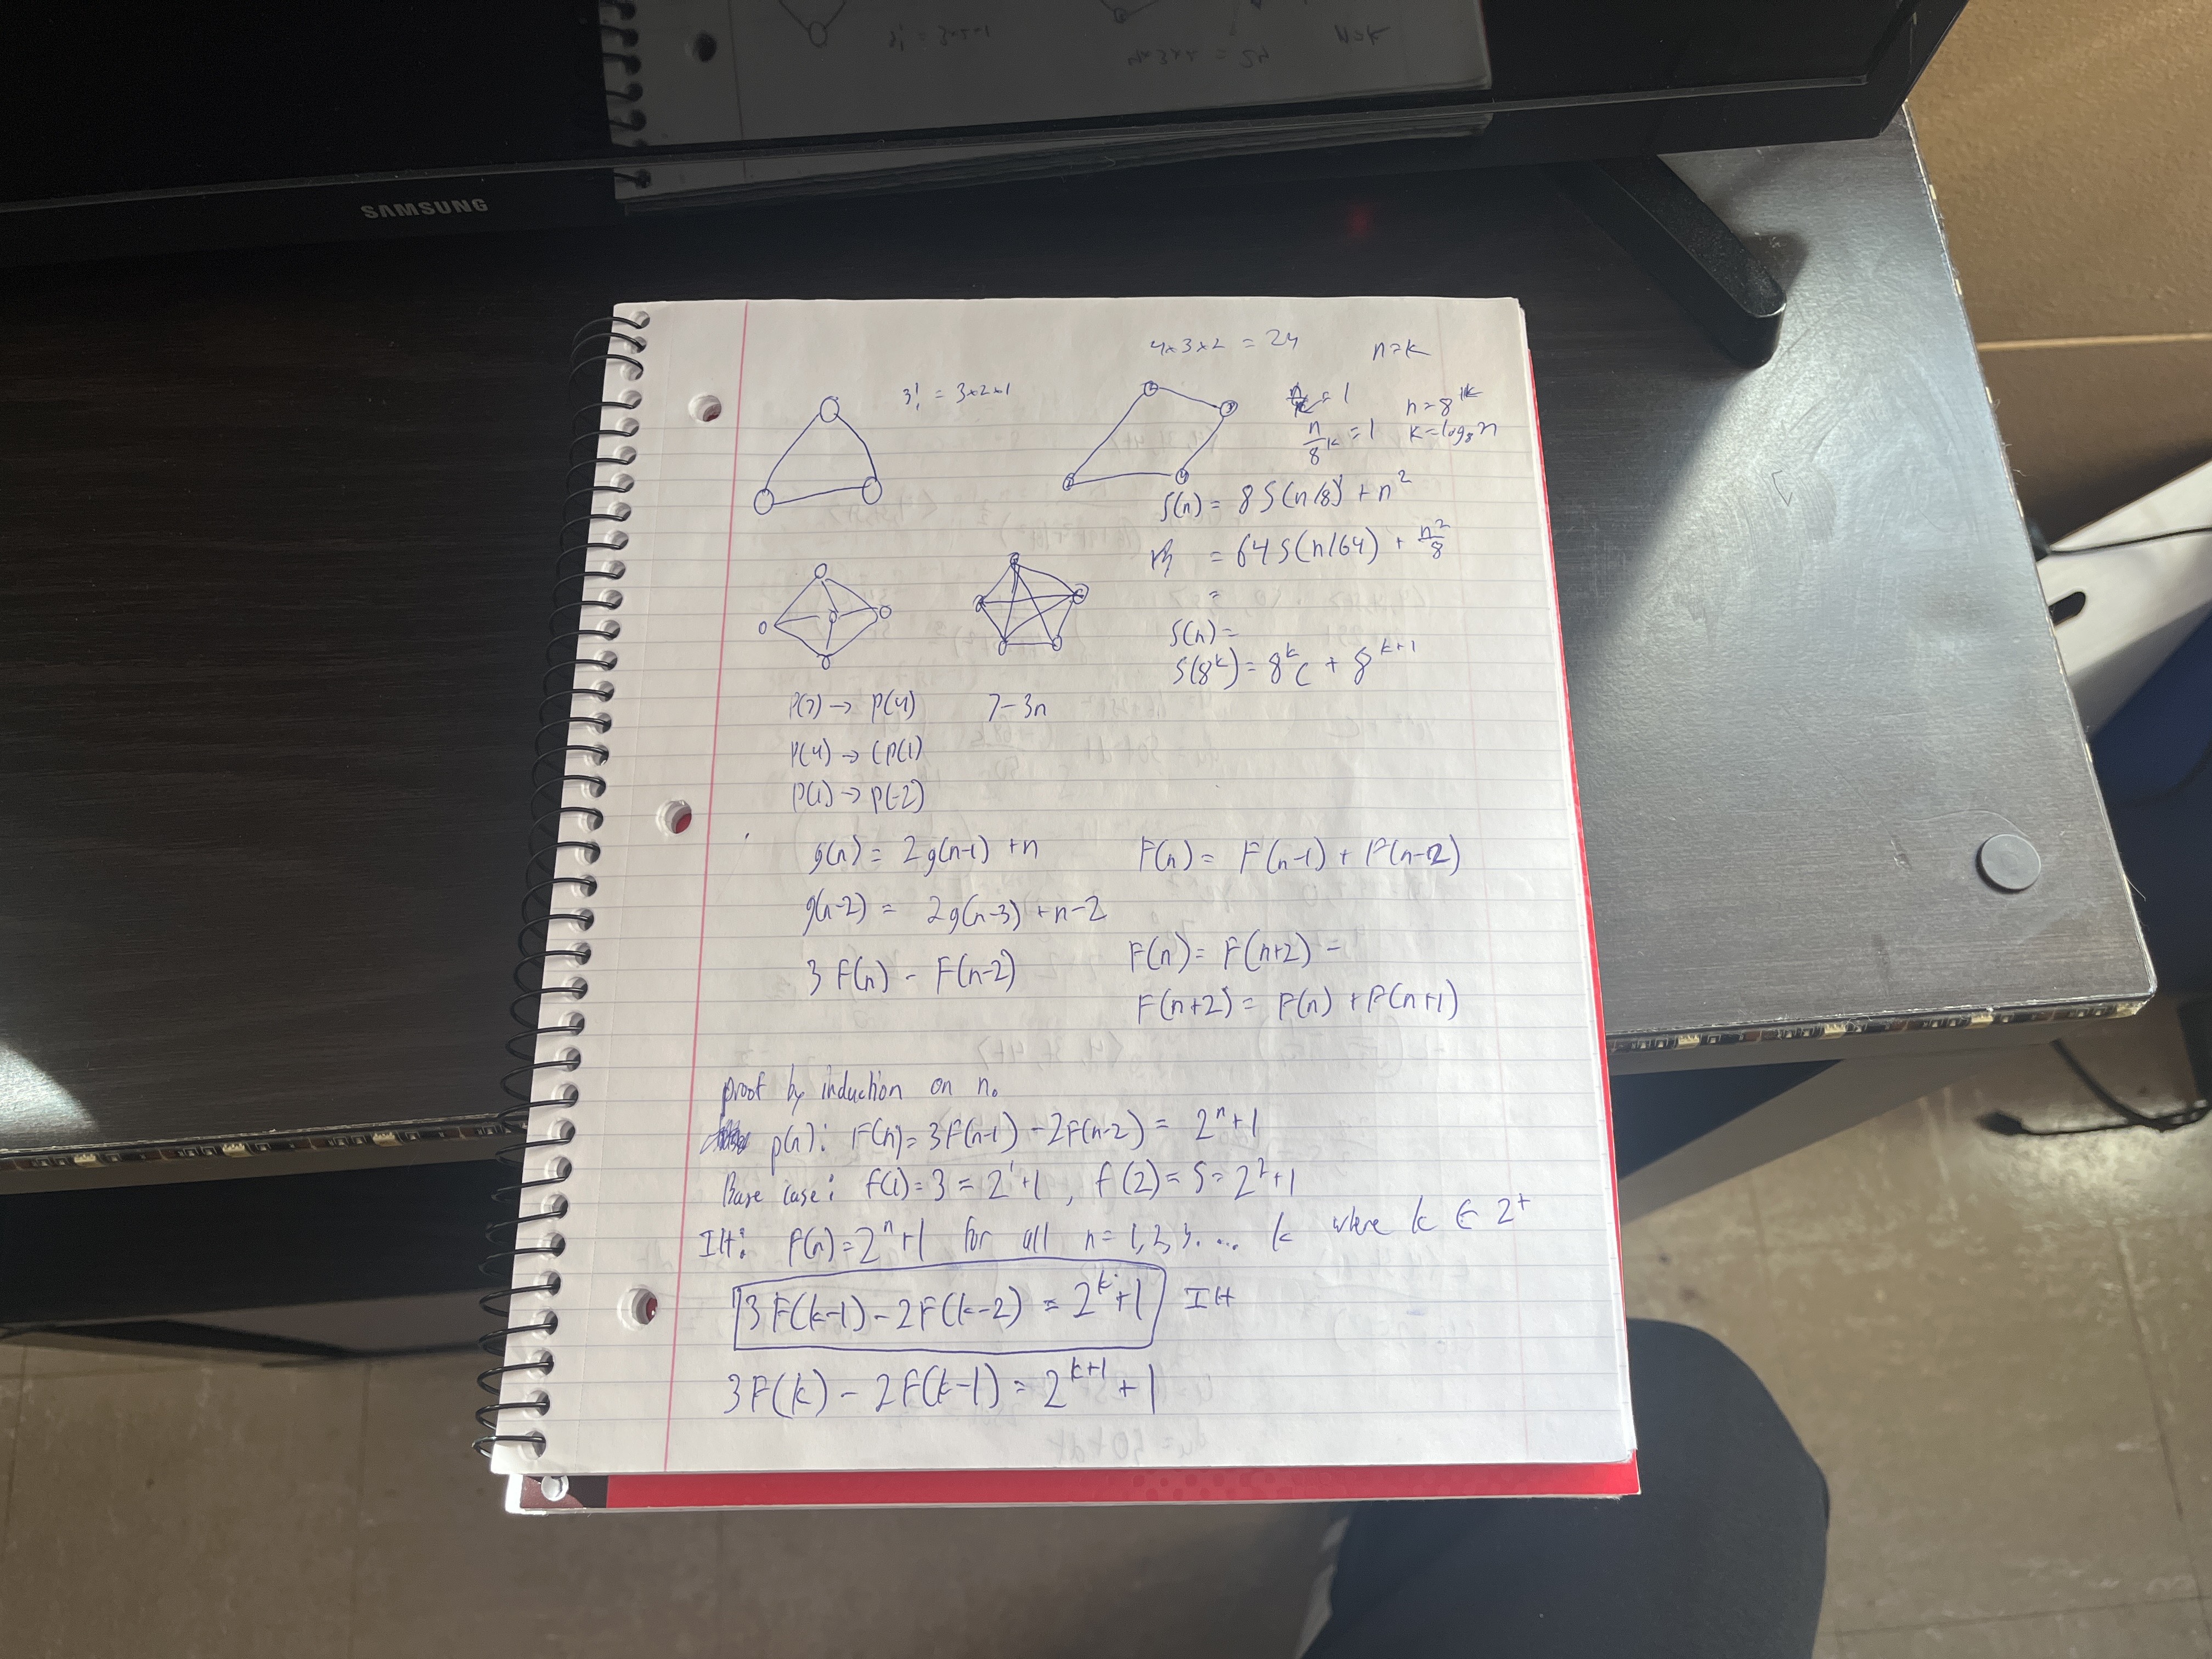 SAMSUNG
3! = 3×2×1
4×3×2 = 24
n=k
n = 8^k
n/8^k = 1 k = log₈n
S(n) = 8S(n/8) + n²
= 64S(n/64) + n²/8
=
S(n) =
S(8^k) = 8^k c + 8^(k+1)
P(7) → P(4) 7-3n
P(4) → P(1)
P(1) → P(-2)
g(n) = 2g(n-1) + n
F(n) = F(n-1) + F(n-2)
g(n-2) = 2g(n-3) + n-2
F(n) = F(n+2) =
3F(n) - F(n-2)
F(n+2) = F(n) + F(n+1)
proof by induction on n.
p(n): F(n) = 3F(n-1) - 2F(n-2) = 2^n+1
Base case: f(1) = 3 = 2^1+1, f(2) = 5 = 2^2+1
IH: f(n) = 2^n+1 for all n = 1, 2, 3, ... k where k ∈ Z^+
3F(k-1) - 2F(k-2) = 2^k+1 IH
3F(k) - 2F(k-1) = 2^(k+1) + 1